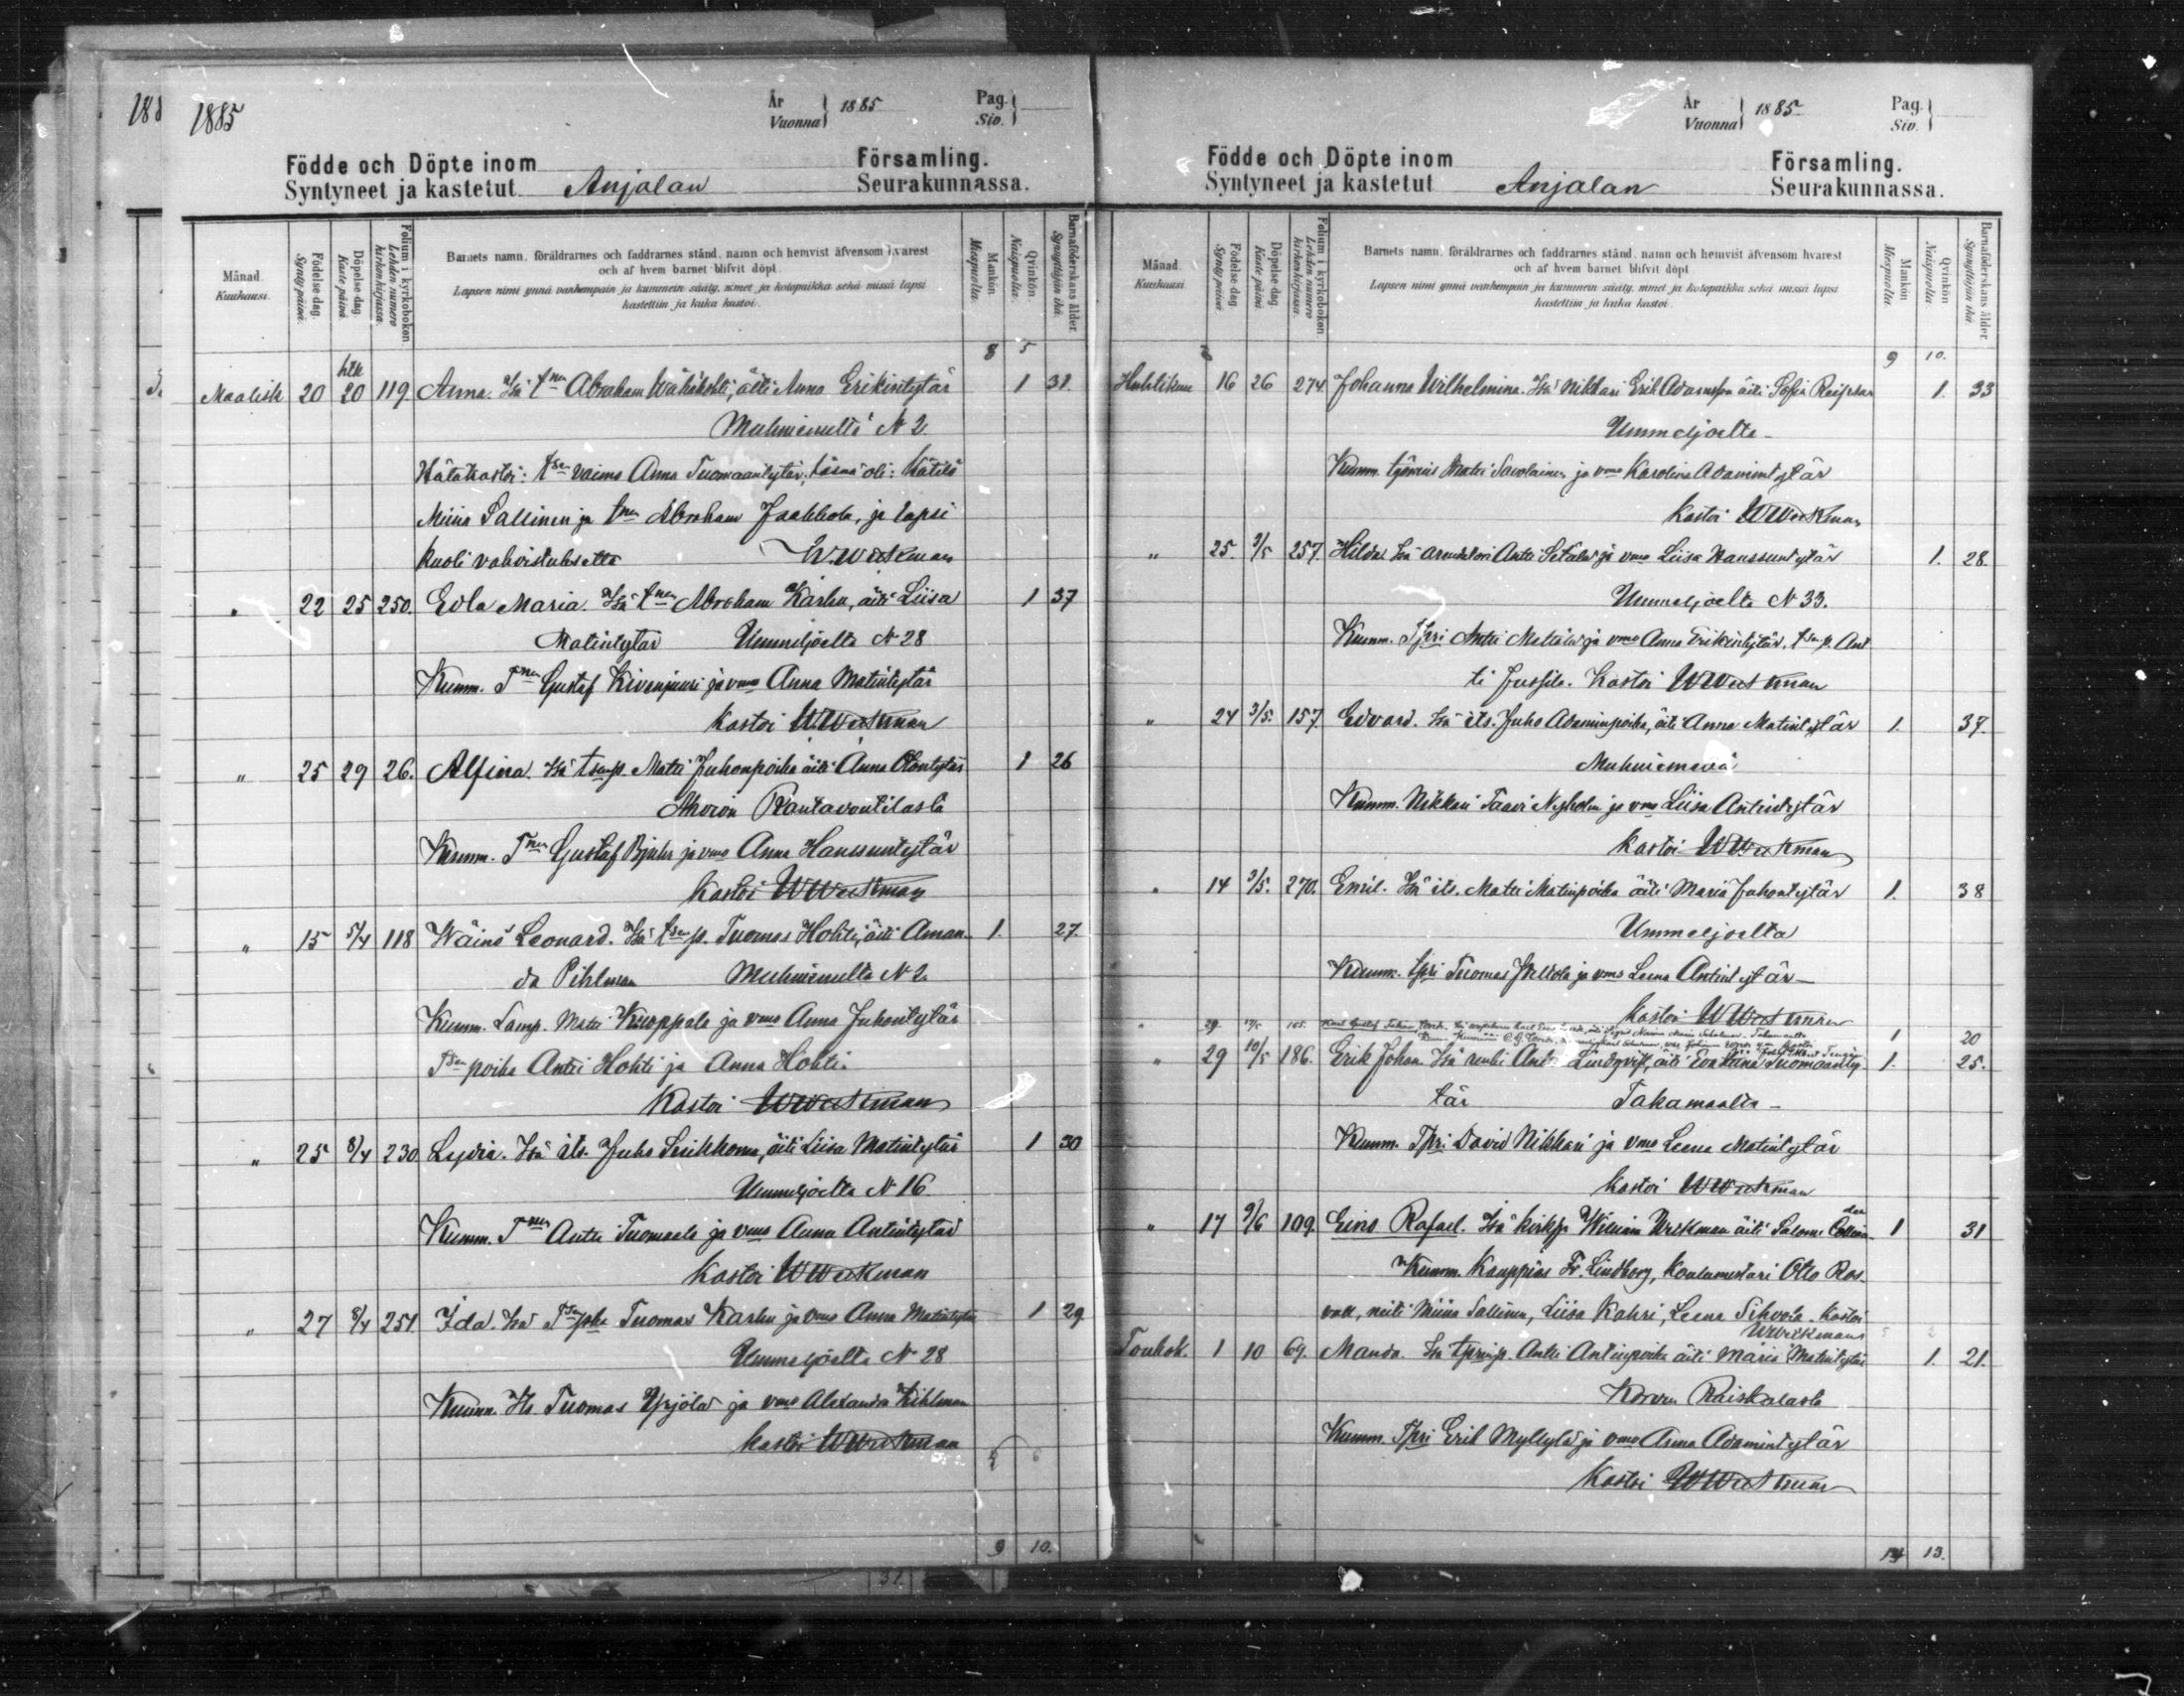 1885
År Vuonna 1885 Pag. Siv.
Födde och Döpte inom Församling.
Syntyneet ja kastetut Anjalan Seurakunnassa.
Månad. Kuuhausi. Födelse dag. Synty päivä. Döpelse dag. Kaste päivä. Folium i kyrkoboken Lehden numero kirkonkirjassa. Barnets namn, föräldrarnes och faddrarnes stånd, namn och hemvist äfvensom hvarest
och af hvem barnet blifvit döpt.
Lapsen nimi ynnä vanhempain ja kummein sääty, nimet ja kotopaikka sekä missä lapsi
kastettiin ja kuka kastoi.
Mankön Miespuolia. Qvinkön Naispuolia. Barnaföderskans ålder. Synnyttäjän ikä.
8 5
Maalisk 20 20 119 Anna. Isä tnen Abraham Wähäkohti, äiti Anna Erikintytär 1 31.
Muhniemeltä N 2.
Hätäkastoi: tsen vaimo Anna Tuomaantytär, läsnä oli: Kätilö
Miina Sallinen ja tnen Abraham Jaakkola, ja lapsi
kuoli vahvistuksetta W. Weckman
" 22 25 250. Evla Maria. Isä tnen Abraham Karhu, äiti Liisa 1 37
Matintytär Ummeljoelta N 28
Kumm. Tnen Gustaf Kivenjuuri ja vmo Anna Matintytär
kastoi W Weckman
" 25 29 26. Alfina. Isä tsenp. Matti Juhonpoika äiti Anna Otontytär 1 26
Rantavoutilasta
Kumm. Tnen Gustaf ja vmo Anna Hannuntytär
kastoi W Weckman
" 15 5/4 118 Wäinö Leonard. Isä tsenp. Tuomas Hohti, äiti Aman- 1. 27
da Pihlman Muhniemeltä N 2.
Kumm. Lamp. Matti Kuoppala ja vmo Anna Juhontytär
Tsen poika Antti Hohti ja Anna Hohti.
Kastoi W Weckman
" 25 8/4 230 Lydia. Isä its. Juho äiti Liisa Matintytär 1 30
Ummeljoelta N 16.
Kumm. Tnen Antti Tuomaala ja vmo Anna Antintytär
Kastoi W Weckman
" 27 8/4 251. Ida. Isä Tsen pka Tuomas Karhu ja vmo Anna Matintytär 1 29
Ummeljoelta N 28
Kumm. Tuomas Yrjölä ja vmo Alexandra Kihlman
kastoi W Weckman
9 10.
År Vuonna 1885 Pag. Siv.
Födde och Döpte inom Församling.
Syntyneet ja kastetut Anjalan Seurakunnassa.
Månad. Kuuhausi. Födelse dag. Synty päivä. Döpelse dag. Kaste päivä. Folium i kyrkoboken Lehden numero kirkonkirjassa. Barnets namn, föräldrarnes och faddrarnes stånd, namn och hemvist äfvensom hvarest
och af hvem barnet blifvit döpt.
Lapsen nimi ynnä vanhempain ja kummein sääty, nimet ja kotopaikka sekä missä lapsi
kastettiin ja kuka kastoi.
Mankön Miespuolia. Qvinkön Naispuolia. Barnaföderskans ålder. Synnyttäjän ikä.
9 10.
Huhtikuu 16 26 274. Johanna Wilhelmina. Isä nikkari Erik Adamsson äiti Sofia 1. 33
Ummeljoelta
Kumm. työmies Matti Savolainen ja vmo Karolina Adamintytär
kastoi W Weckman
" 25. 3/5 257. Hilda. Isä arentatori Antti Setälä ja vmo Liisa Hannuntytär 1. 28.
Ummeljoelta N 33.
Kumm. Tpri Antti Mattila ja vmo Anna Erikintytär, tsen p. Ant
ti Jussila. Kastoi W Weckman
" 24 3/5. 157. Edvard. Isä its. Juho Adaminpoika, äiti Anna Matintytär 1. 37.
Muhniemestä
Kumm. Nikkari Taavi Nyholm ja vmo Liisa Antintytär
kastoi W Weckman
" 14 3/5. 270. Emil. Isä its. Matti Matinpoika äiti Maria Juhontytär 1. 38
Ummeljoelta
Kumm. tpri Tuomas ja vmo Leena Antintytär
kastoi W Weckman
" 29 Karl Gustaf 1 20
" 29 10/5 186. Erik Johan. Isä renki Anders Lindqvist, äiti Eva Leena Tuomaanty- 1. 25.
tär Takamaalta
Kumm. Tpri David Nikkari ja vmo Leena Matintytär
kastoi W Weckman
" 17 9/6 109. Eino Rafael. Isä kirkkoh. William Weckman äiti Salome 1 31
Kumm. Kauppias Fr. Lindborg, koulumestari Otto Ros-
vall, neiti Miina Sallinen, Liisa Kahri, Leena Sihvola. Kastoi
W Weckman
Toukok. 1 10 69. Manda. Isä tprinp. Antti Antinpoika äiti Maria Matintytär 1. 21.
Korven Raiskalasta
Kumm. Tpri Erik Myllylä ja vmo Anna Adamintytär
Kastoi W Weckman
14 13.